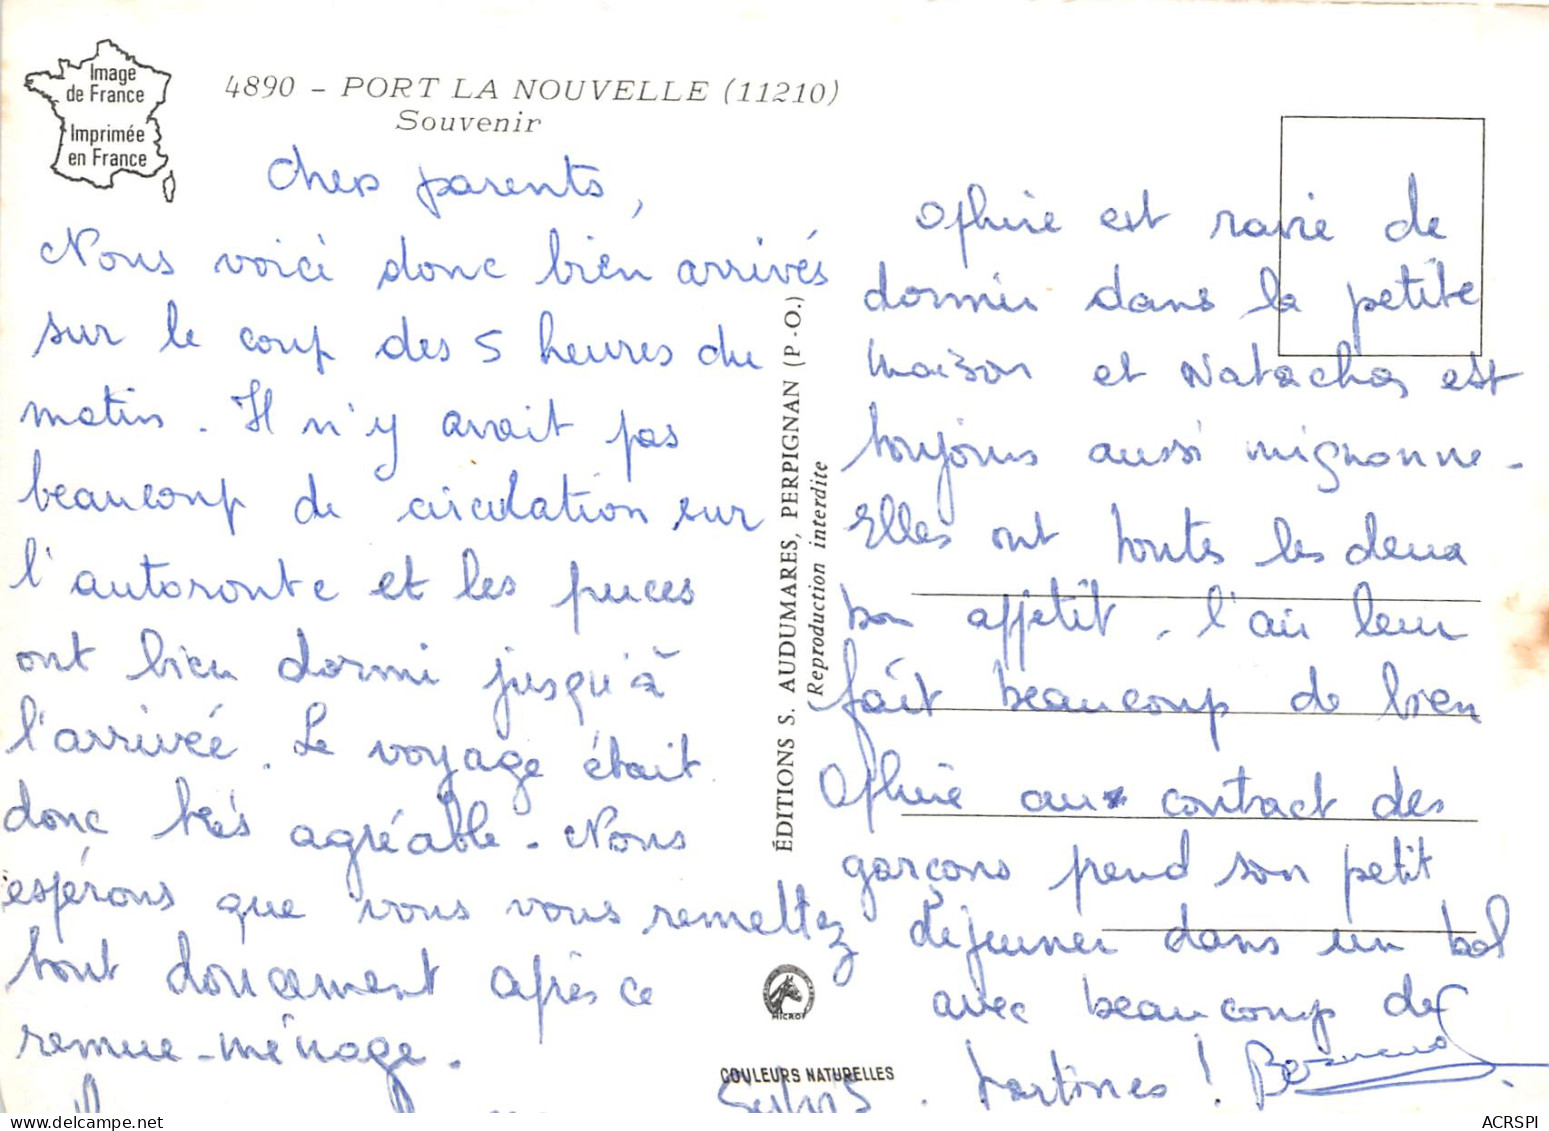 Image
de France
Imprimée
en France
4890 - PORT LA NOUVELLE (11210)
Souvenir
Chers parents,
Nous voici donc bien arrivés
sur le coup des 5 heures du
matin. Il n'y avait pas
beaucoup de circulation sur
l'autoroute et les puces
ont bien dormi jusqu'à
l'arrivée. Le voyage était
donc très agréable. Nous
espérons que vous vous remettez
tout doucement après ce
remue-ménage.
ÉDITIONS S. AUDUMARES, PERPIGNAN (P.-O.)
Reproduction interdite
MICRO
COULEURS NATURELLES
Ophrie est ravie de
dormir dans la petite
maison et Natacha est
toujours aussi mignonne.
Elles ont toutes les deux
bon appétit, l'air leur
fait beaucoup de bien
Ophrie au contact des
garçons prend son petit
déjeuner dans un bol
avec beaucoup de
tartines !
ACRSPI